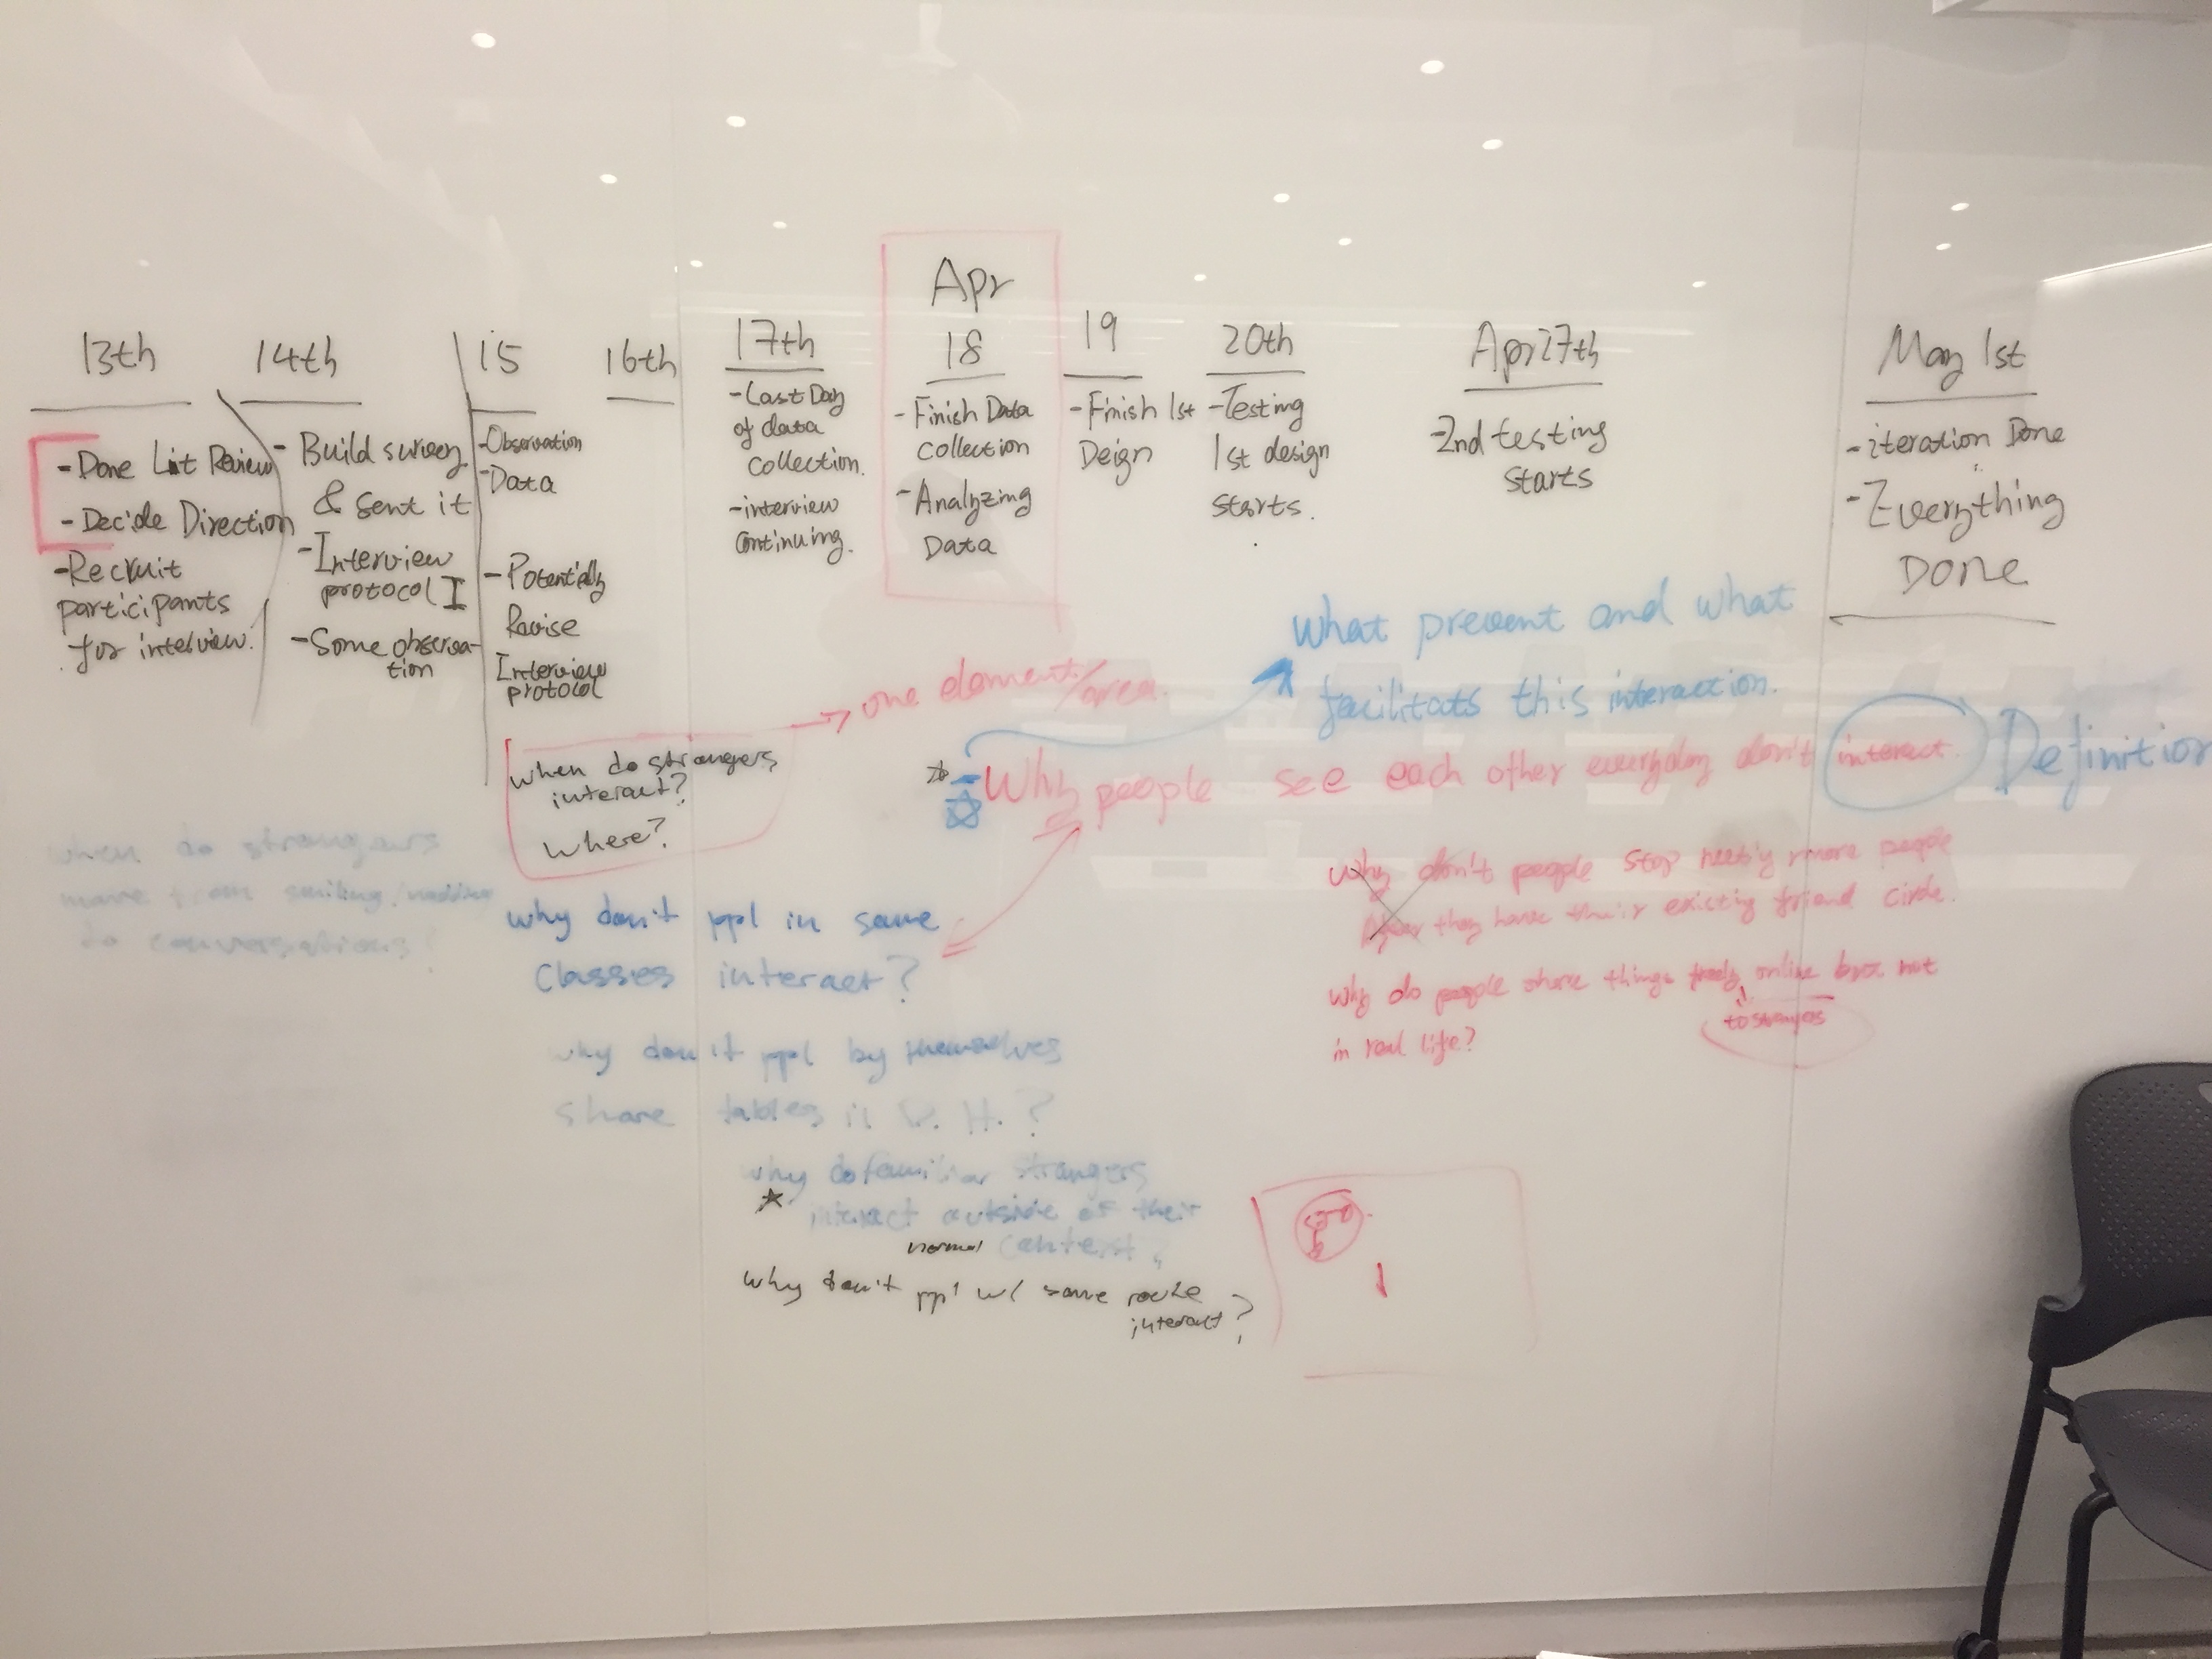 13th
- Done List Review
- Decide Direction
- Recruit
participants
for interview.
14th
- Build survey
& sent it
- Interview
protocol I
- Some observa-
tion
15
- Observation
- Data
- Potentially
Revise
Interview
protocol
16th
17th
- Last Day
of data
collection.
- interview
continuing.
Apr
18
- Finish Data
collection
- Analyzing
Data
19
- Finish 1st
Deign
20th
- Testing
1st design
starts.
Apr 27th
- 2nd testing
starts
May 1st
- iteration Done
- Everything
Done
one element/area.
what prevent and what
facilitats this interaction.
when do strangers
interact?
where?
Why people see each other everyday don't interact. Definition
when do strangers
move from smiling/
to conversations?
why don't ppl in same
classes interact?
why don't ppl by themselves
share tables in D. H. ?
why do familiar strangers
interact outside of their
normal context?
why don't ppl w/ same route
interact?
Why don't people stop more people
they have their existing friend circle.
why do people share things freely online but not
to strangers
in real life?